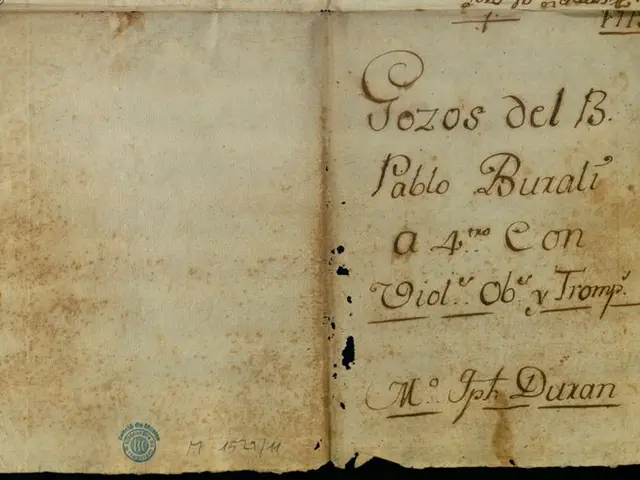 Gozos del B.
Pablo Burali
a 4.tro Con
Viol.s Ob.s y Tromp.s
M.o Jph Duran
M 1521/11